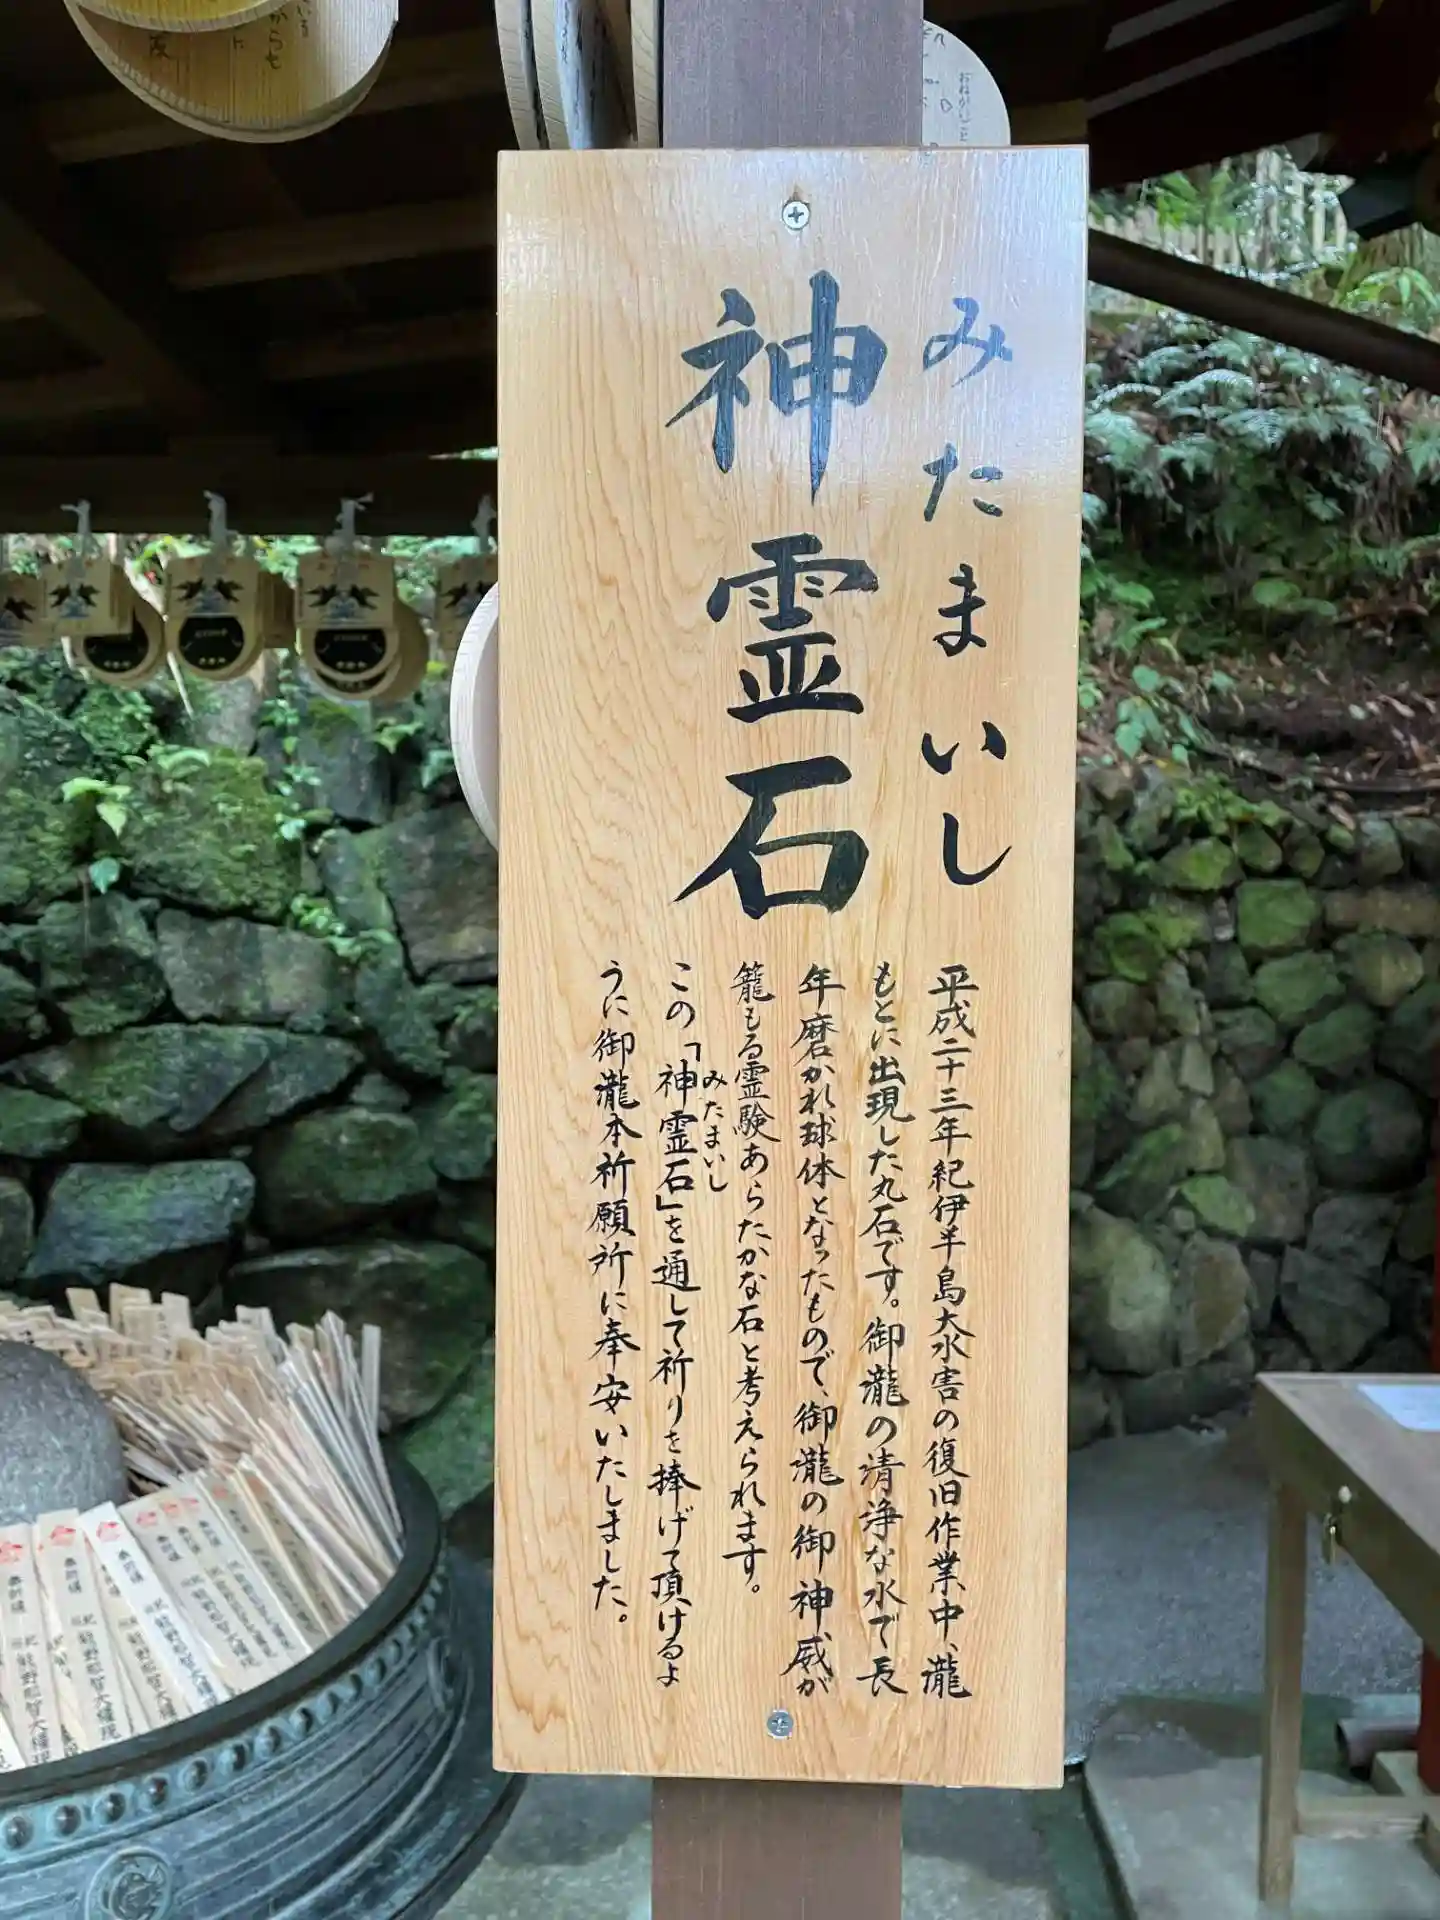 みたまいし
神霊石
平成二十三年紀伊半島大水害の復旧作業中、瀧
もとに出現した丸石です。御瀧の清浄な水で長
年磨かれ球体となったもので、御瀧の御神威が
籠もる霊験あらたかな石と考えられます。
みたまいし
この「神霊石」を通して祈りを捧げて頂けるよ
うに御瀧本祈願所に奉安いたしました。